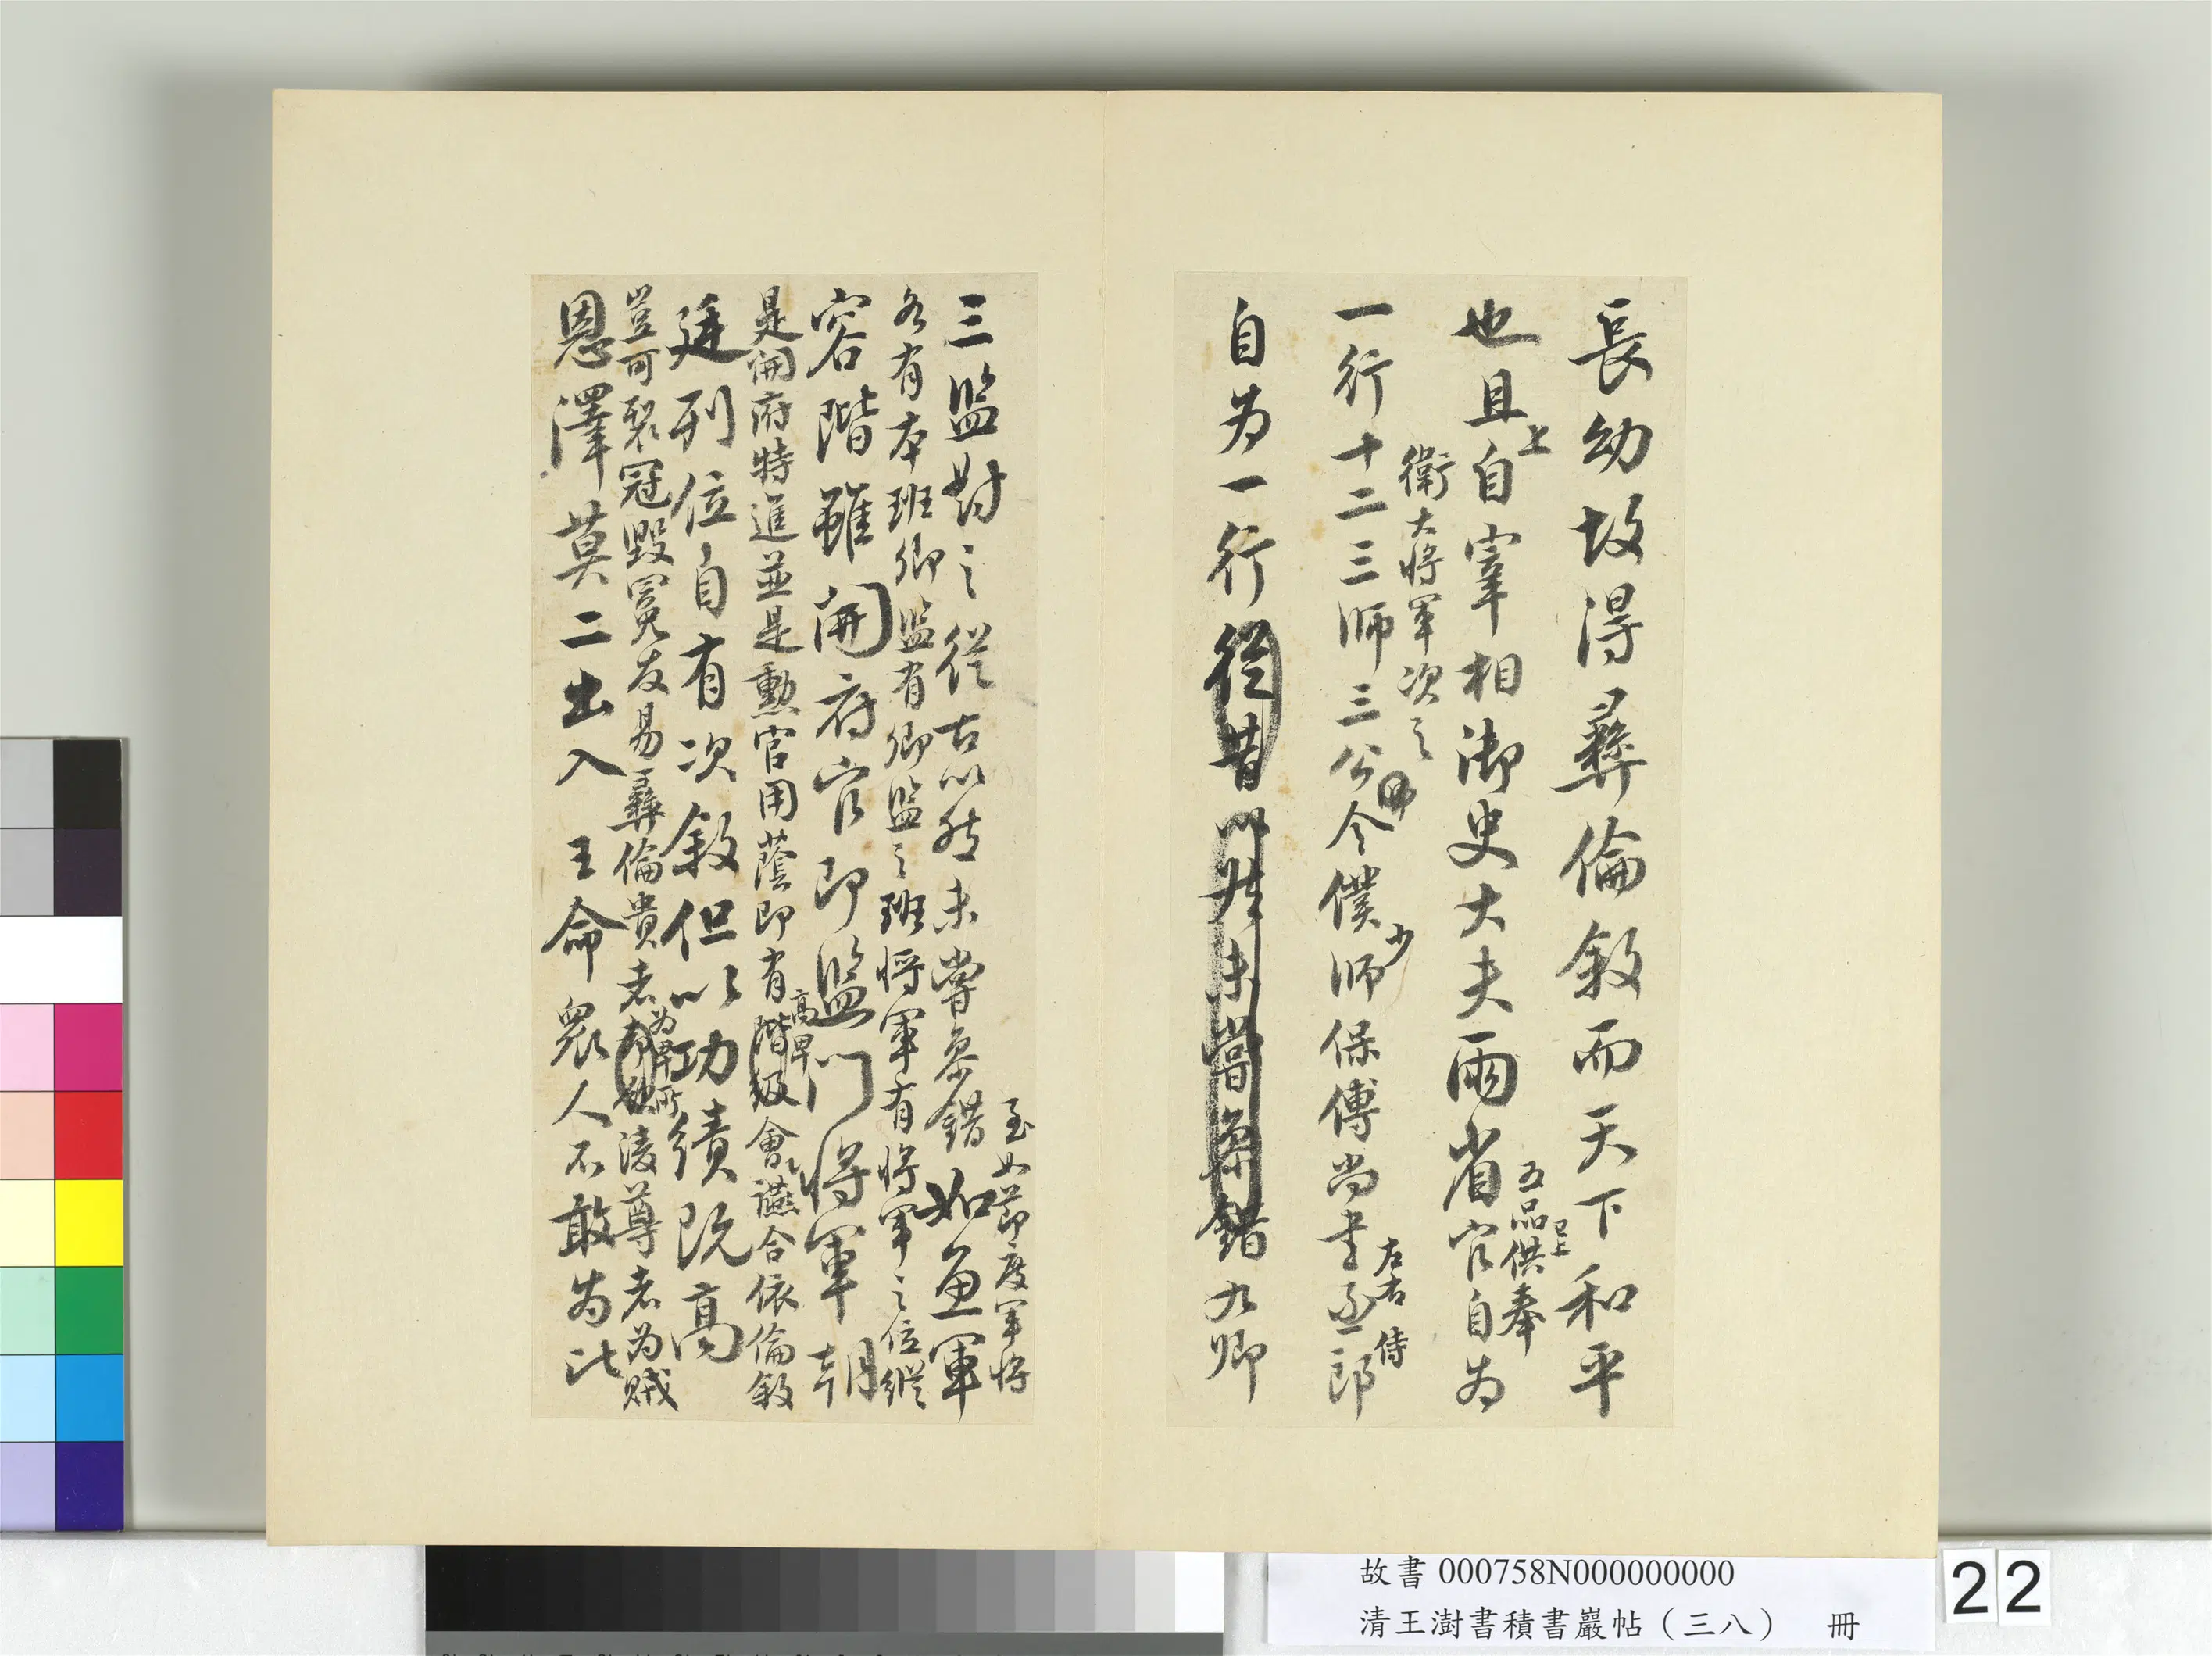 長幼故得彝倫敘而天下和平
也且上自宰相御史大夫兩省
五品已上供奉官自為
一行十二
衛大將軍次之
三師三公令僕
少師保傅尚書
左右丞侍郎
自為一行從古以然未嘗參錯九卿
三監對之從古以然未嘗參錯如魚軍
至如節度軍將
各有本班卿監有卿監之班將軍有將軍之位縱
容階雖開府官即監門將軍朝
是開府特進並是勳官用蔭即有
高卑
階級會讌合依倫敘
廷列位自有次敘但以功績既高
豈可裂冠毀冕反易彝倫貴者
為卑所
凌尊者為賊
恩澤莫二出入王命眾人不敢為此
故書 000758N000000000
清王澍書積書巖帖(三八) 冊
22